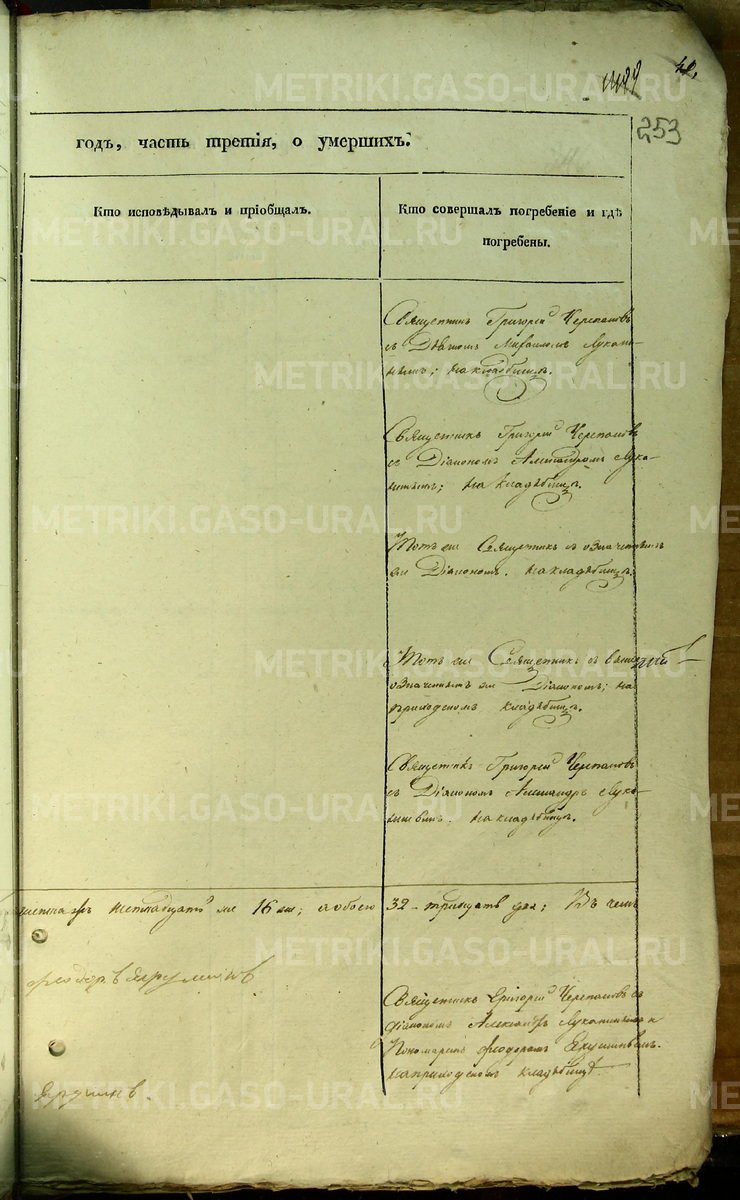 42.
253
годъ, часть третія, о умершихъ.
Кто исповѣдывалъ и пріобщалъ.
Кто совершалъ погребеніе и гдѣ
погребены.
Священникъ Григорій Черепановъ
съ Діакономъ Михаиломъ Лукани-
нымъ; на кладбищѣ.
Священникъ Григорій Черепановъ
съ Діакономъ Александромъ Лука-
нинымъ; на кладбищѣ.
Тотъ же Священникъ съ означеннымъ
же Діакономъ. на кладбищѣ.
Тотъ же Священникъ съ
означеннымъ же Діакономъ; на
приходскомъ кладбищѣ.
Священникъ Григорій Черепановъ
съ Діакономъ Александръ
на кладбищѣ.
16 же; а обоего
32 - тридцать два; Въ чемъ
Священникъ Григорій Черепановъ съ
діакономъ Александръ Луканинымъ и
Пономаремъ Ѳеодоромъ
на приходскомъ кладбищѣ
METRIKI.GASO-URAL.RU